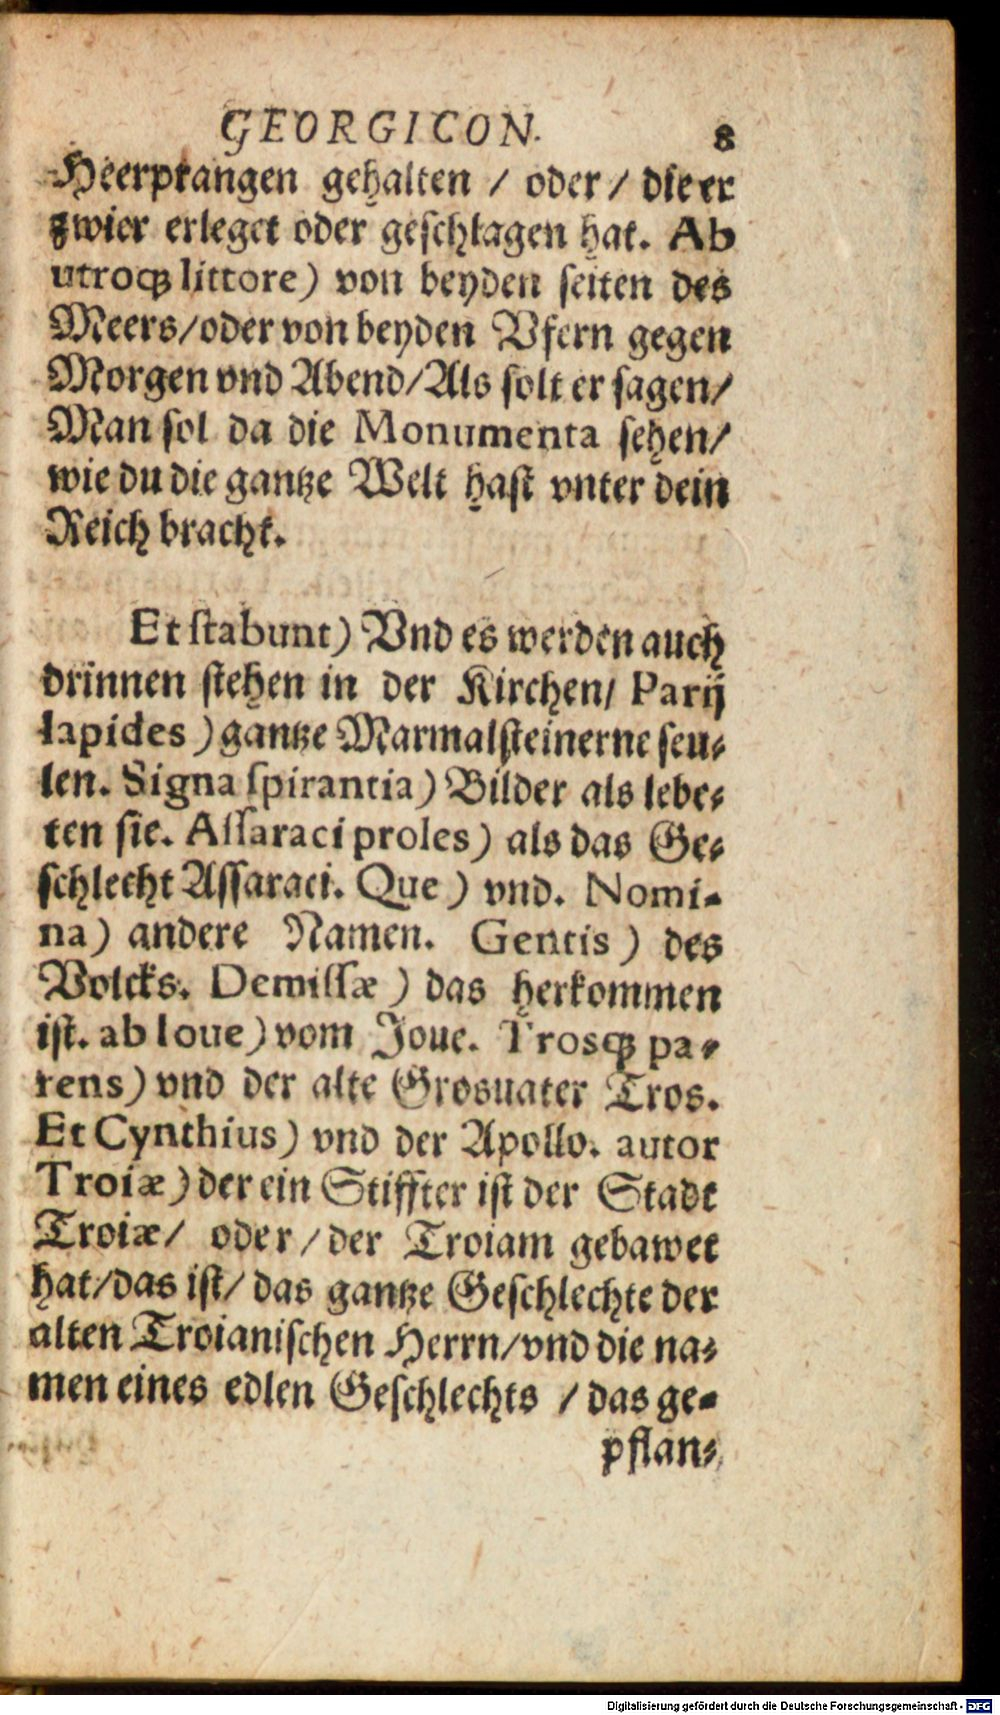 GEORGICON. 8
Heerprangen gehalten / oder / die er
zwier erleget oder geschlagen hat. Ab
utroq́; littore) von beyden seiten des
Meers/oder von beyden Vfern gegen
Morgen vnd Abend/Als solt er sagen/
Man sol da die Monumenta sehen/
wie du die gantze Welt hast vnter dein
Reich bracht.
Et stabunt) Vnd es werden auch
drinnen stehen in der Kirchen/ Parij
lapides) gantze Marmalsteinerne seu-
len. Signa spirantia) Bilder als lebe-
ten sie. Assaraci proles) als das Ge-
schlecht Assaraci. Que) vnd. Nomi-
na) andere Namen. Gentis) des
Volcks. Demissæ) das herkommen
ist. ab Ioue) vom Joue. Trosq́; pa-
rens) vnd der alte Grosuater Tros.
Et Cynthius) vnd der Apollo. autor
Troiæ) der ein Stiffter ist der Stadt
Troiæ/ oder / der Troiam gebawet
hat/das ist/ das gantze Geschlechte der
alten Troianischen Herrn/vnd die na-
men eines edlen Geschlechts / das ge-
pflan-
Digitalisierung gefördert durch die Deutsche Forschungsgemeinschaft - DFG